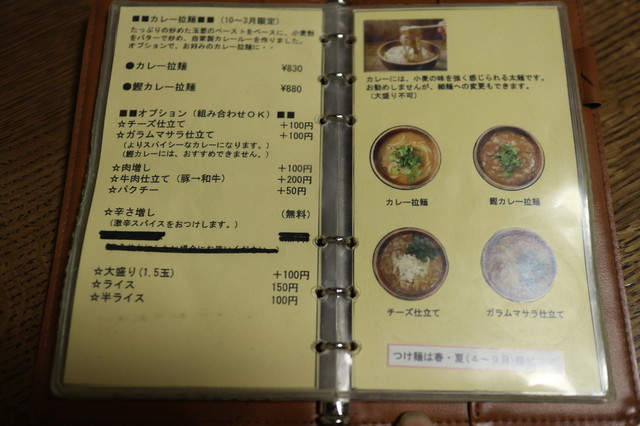 ■■カレー拉麺■■ (10～3月限定)
たっぷりの炒めた玉葱のペーストをベースに、小麦粉
をバターで炒め、自家製カレールーを作りました。
オプションで、お好みのカレー拉麺に・・
●カレー拉麺 ¥830
●鰹カレー拉麺 ¥880
■■オプション(組み合わせOK)■■
☆チーズ仕立て +100円
☆ガラムマサラ仕立て +100円
(よりスパイシーなカレーになります。)
(鰹カレーには、おすすめできません。)
☆肉増し +100円
☆牛肉仕立て(豚→和牛) +200円
☆パクチー +50円
☆辛さ増し (無料)
(激辛スパイスをおつけします。)
☆大盛り(1.5玉) +100円
☆ライス 150円
☆半ライス 100円
カレーには、小麦の味を強く感じられる太麺です。
お勧めしませんが、細麺への変更もできます。
(大盛り不可)
カレー拉麺
鰹カレー拉麺
チーズ仕立て
ガラムマサラ仕立て
つけ麺は春・夏(4～9月)